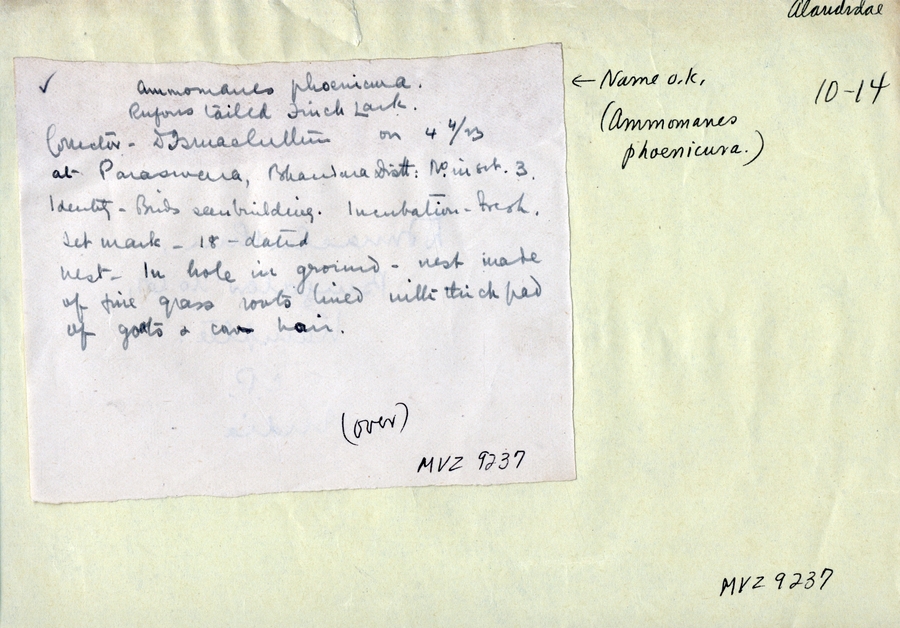 Alaudidae
10-14
✓ Ammomanes phoenicura.
Rufous tailed Finch Lark.
Collector - on 4 4/23
at- Paraswara, Bhandara Distt: No. in set. 3.
Identity - Birds seen building. Incubation - Fresh.
Set mark - 18 - dated
Nest - In hole in ground - nest made
of fine grass roots lined with thick pad
of goats & cows hair.
(over)
MVZ 9237
← Name o.k.
(Ammomanes
phoenicura.)
MVZ 9237